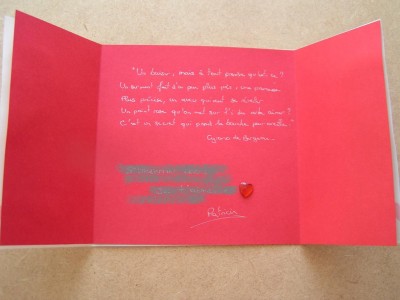 "Un baiser, mais à tout prendre qu'est-ce ?
Un serment fait d'un peu plus près, une promesse
Plus précise, un aveu qui veut se
Un point rose qu'on met sur l'i du verbe aimer ?
C'est un secret qui prend la bouche pour oreille"
Cyrano de Bergerac
Patricia